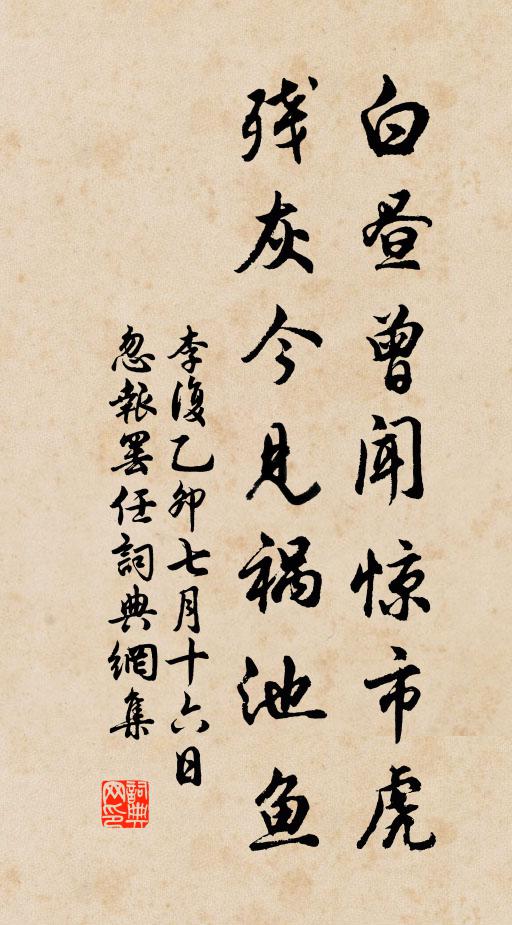 白昼曾闻惊市虎
残灰今见祸池鱼
李復乙卯七月十六日
忽報罢任詞典網集
詞典网印